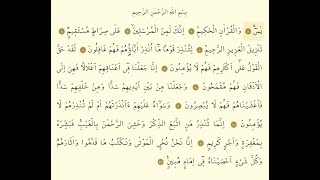 بِسْمِ اللَّهِ الرَّحْمَٰنِ الرَّحِيمِ
يسٓ ۞ وَالْقُرْآنِ الْحَكِيمِ ۞ إِنَّكَ لَمِنَ الْمُرْسَلِينَ ۞ عَلَىٰ صِرَاطٍ مُسْتَقِيمٍ ۞
تَنْزِيلَ الْعَزِيزِ الرَّحِيمِ ۞ لِتُنْذِرَ قَوْمًا مَا أُنْذِرَ آبَاؤُهُمْ فَهُمْ غَافِلُونَ ۞ لَقَدْ حَقَّ
الْقَوْلُ عَلَىٰ أَكْثَرِهِمْ فَهُمْ لَا يُؤْمِنُونَ ۞ إِنَّا جَعَلْنَا فِي أَعْنَاقِهِمْ أَغْلَالًا فَهِيَ إِلَى
الْأَذْقَانِ فَهُمْ مُقْمَحُونَ ۞ وَجَعَلْنَا مِنْ بَيْنِ أَيْدِيهِمْ سَدًّا وَمِنْ خَلْفِهِمْ سَدًّا
فَأَغْشَيْنَاهُمْ فَهُمْ لَا يُبْصِرُونَ ۞ وَسَوَاءٌ عَلَيْهِمْ أَأَنْذَرْتَهُمْ أَمْ لَمْ تُنْذِرْهُمْ لَا
يُؤْمِنُونَ ۞ إِنَّمَا تُنْذِرُ مَنِ اتَّبَعَ الذِّكْرَ وَخَشِيَ الرَّحْمَٰنَ بِالْغَيْبِ فَبَشِّرْهُ
بِمَغْفِرَةٍ وَأَجْرٍ كَرِيمٍ ۞ إِنَّا نَحْنُ نُحْيِي الْمَوْتَىٰ وَنَكْتُبُ مَا قَدَّمُوا وَآثَارَهُمْ
وَكُلَّ شَيْءٍ أَحْصَيْنَاهُ فِي إِمَامٍ مُبِينٍ ۞